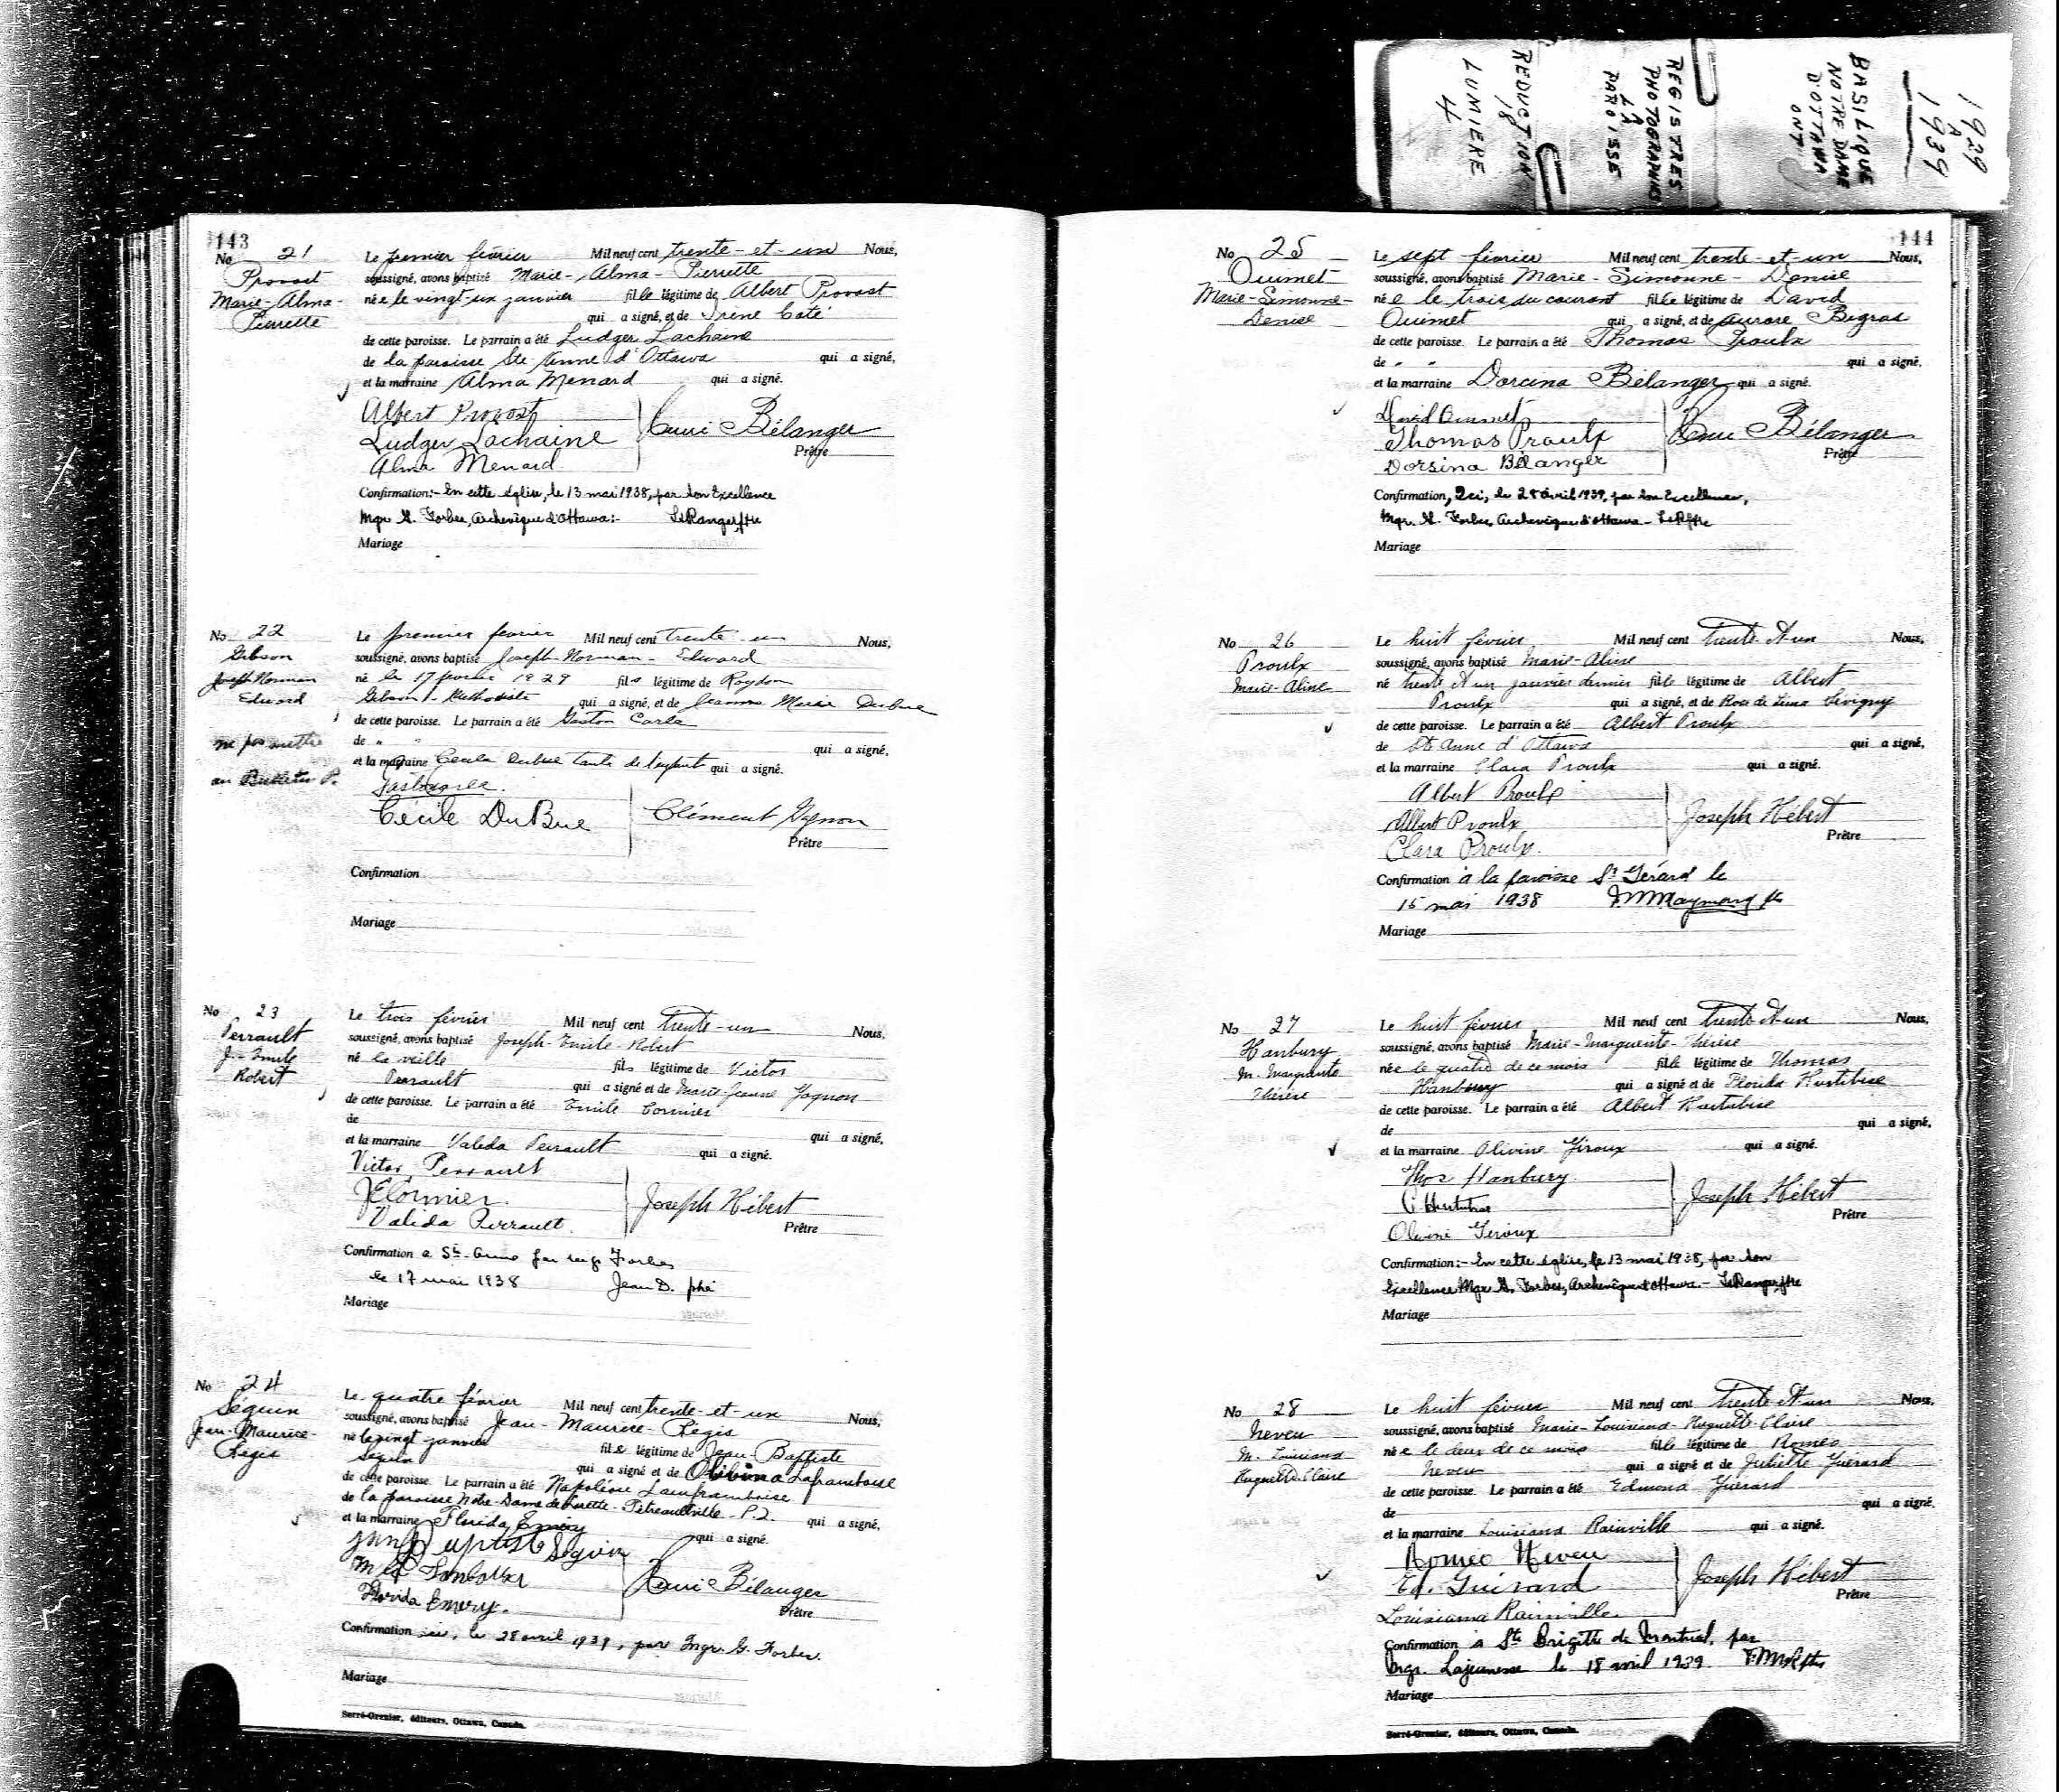 1929
A
1939
BASILIQUE
NOTRE DAME
D'OTTAWA
ONT
REGISTRES
PHOTOGRAPHIES
LA
PAROISSE
REDUCTION
18
LUMIERE
4
143
No 21
Provost
Marie-Alma-
Pierrette
Le premier février Mil neuf cent trente-et-un Nous,
soussigné, avons baptisé Marie-Alma-Pierrette
née le vingt-six janvier fille légitime de Albert Provost
qui a signé, et de Irène Coté
de cette paroisse. Le parrain a été Ludger Lachaine
de la paroisse Ste Anne d'Ottawa qui a signé,
et la marraine Alma Menard qui a signé.
Albert Provost
Ludger Lachaine
Alma Menard
Bélanger
Prêtre
Confirmation:- En cette église, le 13 mai 1938, par Son Excellence
Mgr. G. Forbes, Archevêque d'Ottawa:-
Mariage
No 22
Gibson
Joseph Norman
Edward
ne pas mettre
au Bulletin P.
Le premier fevrier Mil neuf cent trente-un Nous,
soussigné, avons baptisé Joseph-Norman-Edward
né le 17 1929 fils légitime de Roydon
Gibson - Methodiste qui a signé, et de Jeanne Marie Dubue
de cette paroisse. Le parrain a été Gaston Carle
de " " qui a signé,
et la marraine Cecile Dubue tante de l'enfant qui a signé.
Gaston Carle.
Cécile DuBue
Clément
Prêtre
Confirmation
Mariage
No 23
Perrault
J.-Emile
Robert
Le trois février Mil neuf cent trente-un Nous,
soussigné, avons baptisé Joseph-Emile-Robert
né la veille fils légitime de Victor
Perrault qui a signé et de Marie-Jeanne Gagnon
de cette paroisse. Le parrain a été Emile Cormier
de qui a signé,
et la marraine Valida Perrault qui a signé.
Victor Perrault
Cormier
Valida Perrault.
Joseph Hébert
Prêtre
Confirmation a Ste-Anne par Mgr Forbes
le 17 mai 1938 Jean D. ptre
Mariage
No 24
Séguin
Jean-Maurice-
Régis
Le quatre février Mil neuf cent trente-et-un Nous,
soussigné, avons baptisé Jean-Maurice-Régis
né le vingt janvier fils légitime de Jean-Baptiste
Séguin qui a signé et de Laframboise
de cette paroisse. Le parrain a été Napoléon Laframboise
de la paroisse Notre-Dame de Lorette - Tétreaultville - P.Q. qui a signé,
et la marraine Florida Emery qui a signé.
Baptiste Séguin
Florida Emery.
Bélanger
Prêtre
Confirmation ici, le 28 avril 1939, par Mgr. G. Forbes.
Mariage
Serré-Grenier, éditeurs, Ottawa, Canada.
144
No 25
Ouimet
Marie-Simonne-
Denise
Le sept février Mil neuf cent trente-et-un Nous,
soussigné, avons baptisé Marie-Simonne-Denise
née le trois du courant fille légitime de David
Ouimet qui a signé, et de Aurore Bigras
de cette paroisse. Le parrain a été Thomas Proulx
de " " qui a signé,
et la marraine Dorcina Bélanger qui a signé.
David Ouimet
Thomas Proulx
Dorsina Bélanger
Bélanger
Prêtre
Confirmation, Ici, le 28 avril 1939, par Son Excellence,
Mgr. G. Forbes, Archevêque d'Ottawa -
Mariage
No 26
Proulx
Marie-Aline
Le huit février Mil neuf cent trente et un Nous,
soussigné, avons baptisé Marie-Aline
né trente et un janvier dernier fille légitime de Albert
Proulx qui a signé, et de Rose de Lima Sévigny
de cette paroisse. Le parrain a été Albert Proulx
de Ste Anne d'Ottawa qui a signé,
et la marraine Clara Proulx qui a signé.
Albert Proulx
Albert Proulx
Clara Proulx.
Joseph Hébert
Prêtre
Confirmation à la paroisse St Gérard le
15 mai 1938
Mariage
No 27
Hanbury
M. Marguerite
Thérèse
Le huit février Mil neuf cent trente et un Nous,
soussigné, avons baptisé Marie-Marguerite-Thérèse
née le quatre de ce mois fille légitime de Thomas
Hanbury qui a signé et de Florida Hurtubise
de cette paroisse. Le parrain a été Albert Hurtubise
de qui a signé,
et la marraine Olivine Giroux qui a signé.
Thos Hanbury.
Hurtubise
Olivine Giroux
Joseph Hébert
Prêtre
Confirmation:- En cette église, le 13 mai 1938, par Son
Excellence Mgr. G. Forbes, Archevêque d'Ottawa. -
Mariage
No 28
Neveu
M. Louisiana
Huguette Claire
Le huit février Mil neuf cent trente et un Nous,
soussigné, avons baptisé Marie-Louisiana-Huguette-Claire
née le deux de ce mois fille légitime de Roméo
Neveu qui a signé et de Juliette Guérard
de cette paroisse. Le parrain a été Edmond Guérard
de qui a signé.
et la marraine Louisiana Rainville qui a signé.
Romeo Neveu
Ed. Guérard
Louisiana Rainville.
Joseph Hébert
Prêtre
Confirmation à Ste Brigitte de Montréal, par
Mgr. Lajeunesse le 18 avril 1939
Mariage
Serré-Grenier, éditeurs, Ottawa, Canada.